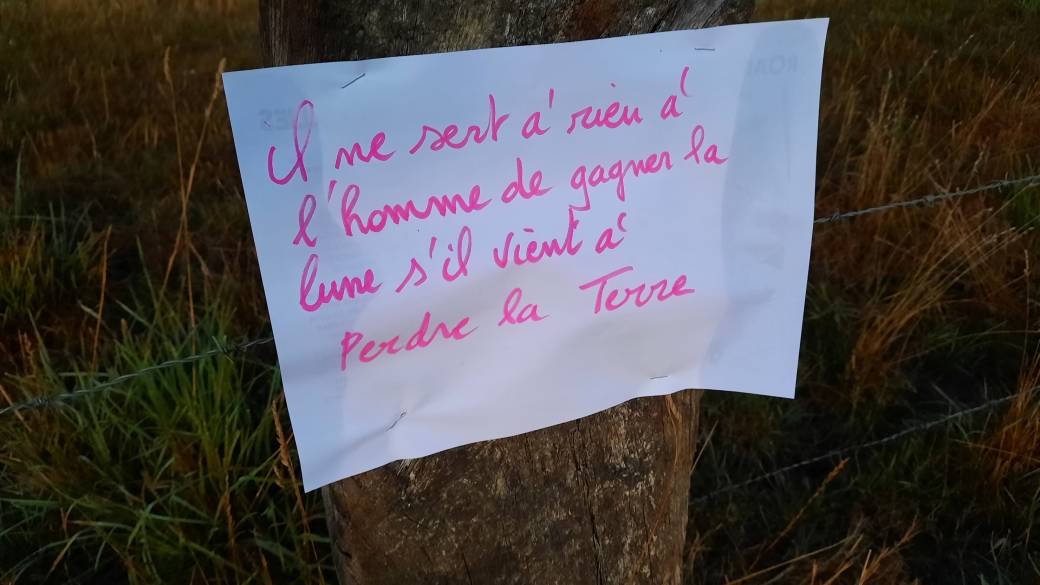 Il ne sert à rien à
l'homme de gagner la
lune s'il vient à
perdre la Terre